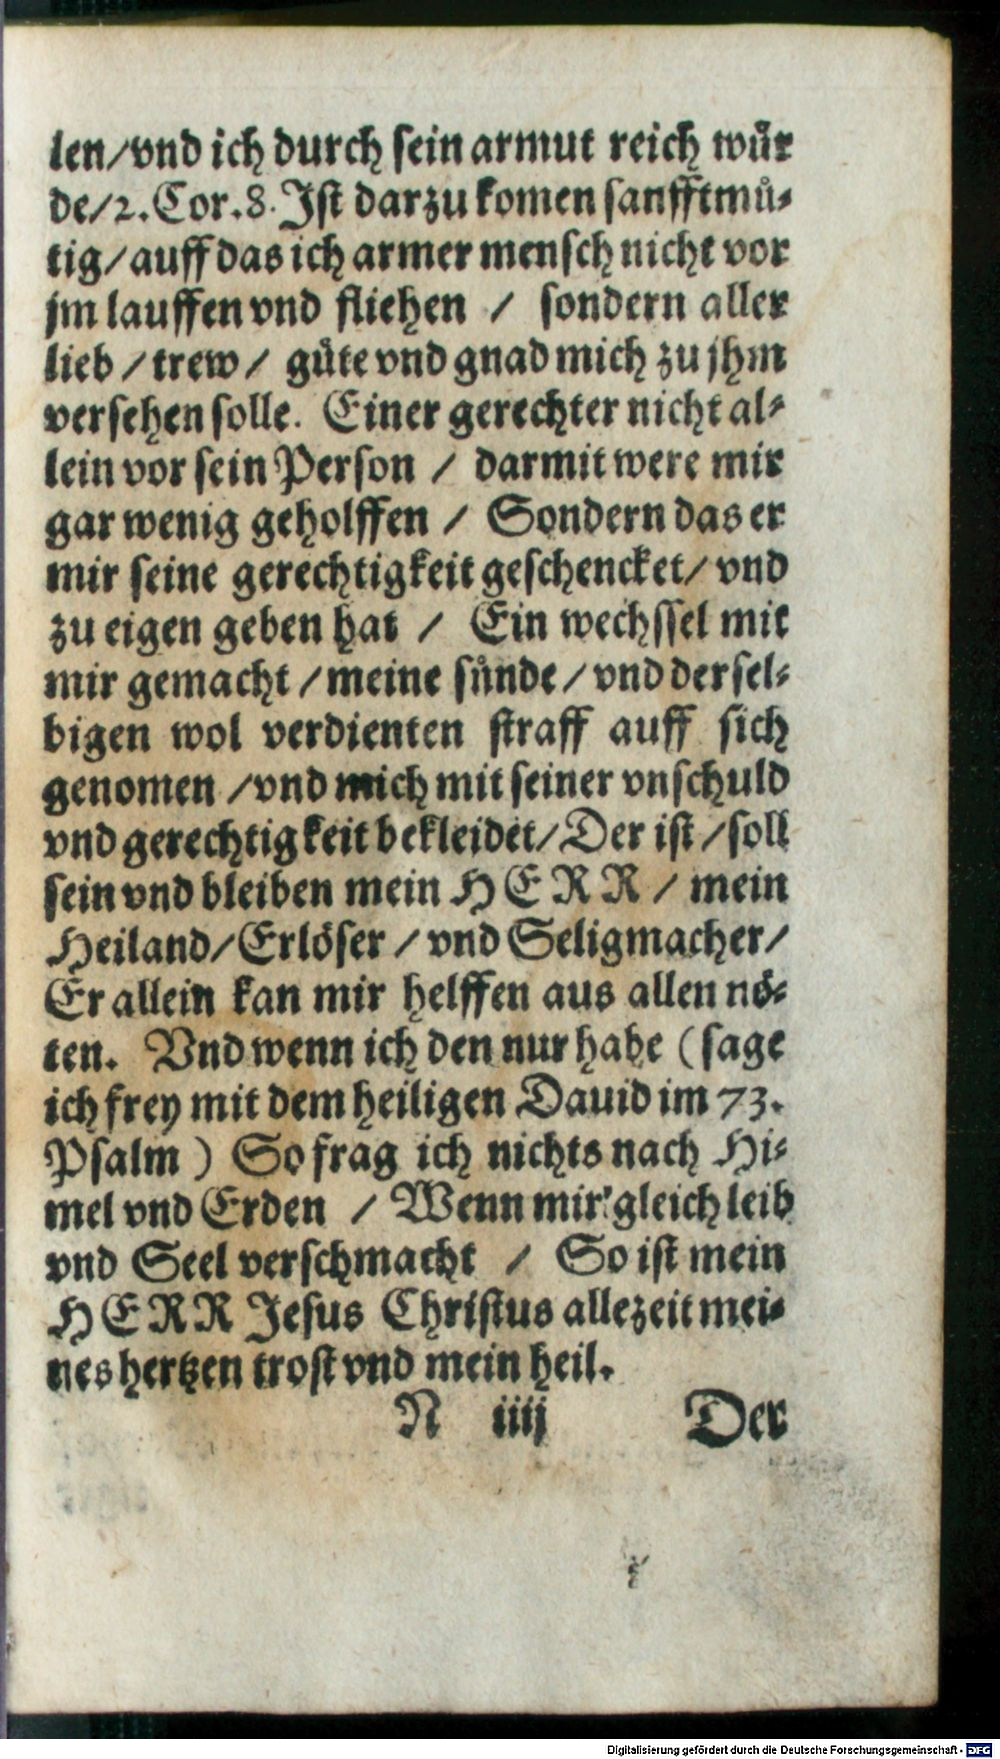 len/vnd ich durch sein armut reich wuͤr
de/2. Cor. 8. Ist darzu komen sanfftmuͤ⸗
tig/auff das ich armer mensch nicht vor
jm lauffen vnd fliehen / sondern aller
lieb / trew / guͤte vnd gnad mich zu jhm
versehen solle. Einer gerechter nicht al⸗
lein vor sein Person / darmit were mir
gar wenig geholffen / Sondern das er
mir seine gerechtigkeit geschencket/ vnd
zu eigen geben hat / Ein wechssel mit
mir gemacht / meine suͤnde / vnd dersel⸗
bigen wol verdienten straff auff sich
genomen /vnd mich mit seiner vnschuld
vnd gerechtigkeit bekleidet/ Der ist / soll
sein vnd bleiben mein HERR / mein
Heiland/ Erloͤser / vnd Seligmacher/
Er allein kan mir helffen aus allen noͤ⸗
ten. Vnd wenn ich den nur habe (sage
ich frey mit dem heiligen Dauid im 73.
Psalm) So frag ich nichts nach Hi⸗
mel vnd Erden / Wenn mir gleich leib
vnd Seel verschmacht / So ist mein
HERR Jesus Christus allezeit mei⸗
nes hertzen trost vnd mein heil.
N iiij Der
Digitalisierung gefördert durch die Deutsche Forschungsgemeinschaft - DFG